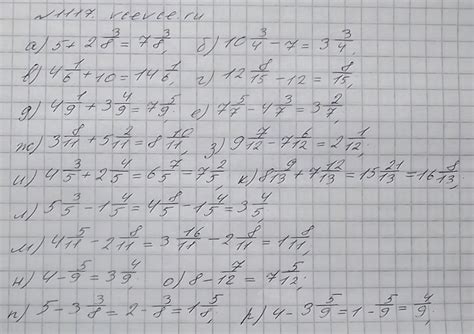 №1117. vcevce.ru
а) 5+2 3/8=7 3/8; б) 10 3/4-7=3 3/4;
в) 4 1/6+10=14 1/6; г) 12 8/15-12=8/15;
д) 4 1/9+3 4/9=7 5/9; е) 7 5/7-4 3/7=3 2/7;
ж) 3 8/11+5 2/11=8 10/11; з) 9 7/12-7 6/12=2 1/12;
и) 4 3/5+2 4/5=6 7/5=7 2/5; к) 8 9/13+7 12/13=15 21/13=16 8/13;
л) 5 3/5-1 4/5=4 8/5-1 4/5=3 4/5;
м) 4 5/11-2 8/11=3 16/11-2 8/11=1 8/11;
н) 4-5/9=3 4/9; о) 8-7/12=7 5/12;
п) 5-3 3/8=2-3/8=1 5/8; р) 4-3 5/9=1-5/9=4/9.